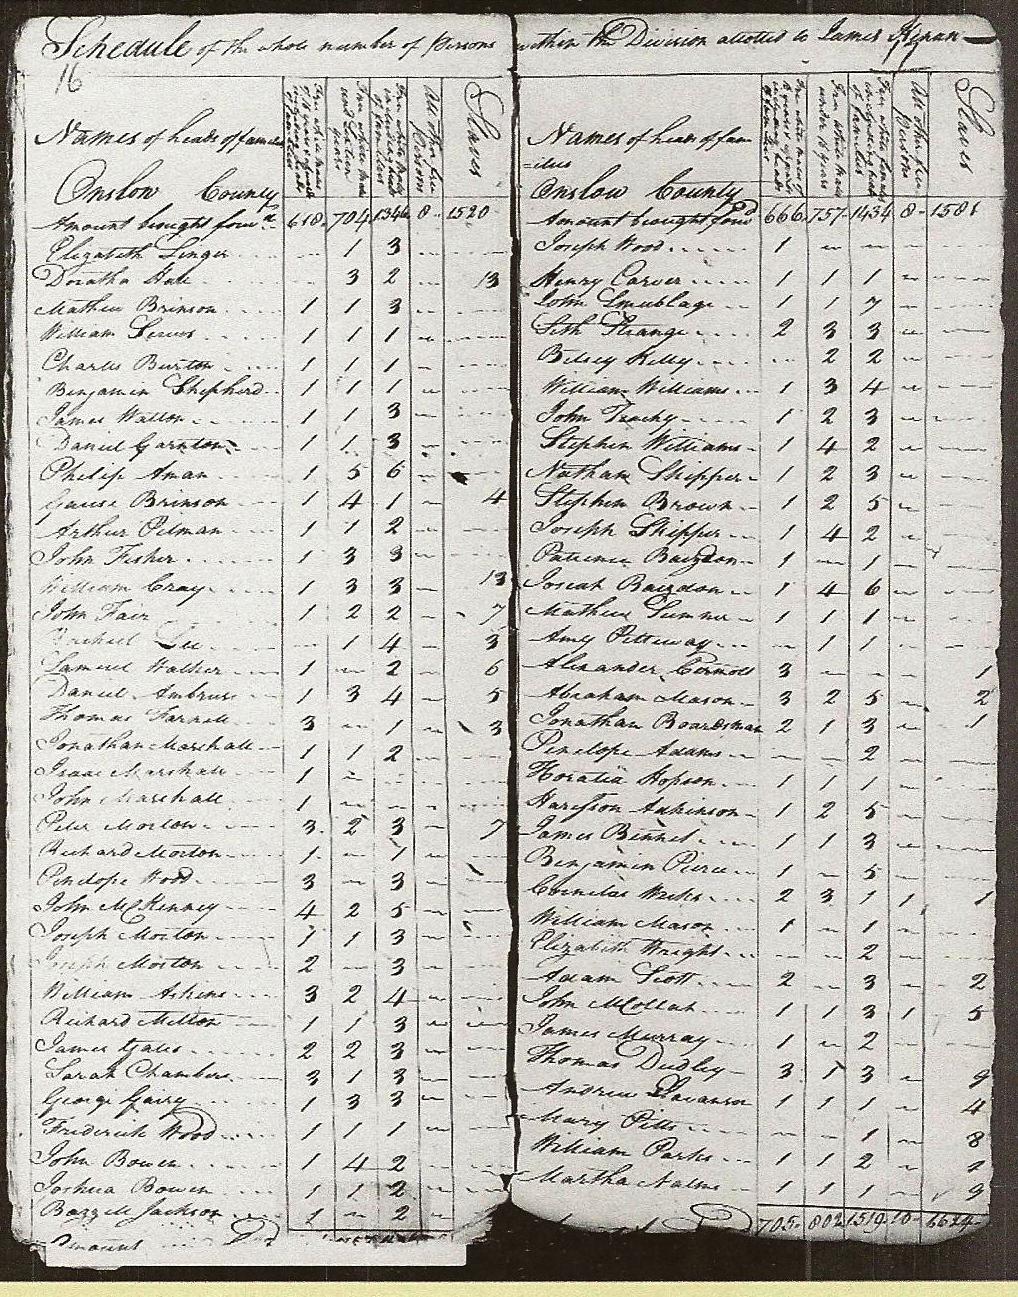 Schedule of the whole number of Persons within the Division alloted to James Kenan
16 17
Names of heads of famelies
Free white males of 16 years & upwards including heads of families
Free white males under sixteen years
Free white females including heads of families
All other free persons
Slaves
Onslow County
Amount brought forwd. 618 704 1346 8 1520
Elizabeth 1 3
Doratha 3 2 13
Mathew Brinson 1 1 3
William 1 1 1
Charles Burton 1 1 1
Benjamin Shepherd 1 1 1
James Walton 1 1 3
Daniel 1 1 3
Philip Aman 1 5 6
Brinson 1 4 1 4
Arthur Pitman 1 1 2
John Fisher 1 3 3
William Cray 1 3 3 13
John Fair 1 2 2 7
Lee 1 4 3
Samuel Walker 1 2 6
Daniel Ambrose 1 3 4 5
Thomas Farnell 3 1 3
Jonathan Marshall 1 1 2
Isaac Marshall 1
John Marshall 1
Peter Morton 3 2 3 7
Richard Morton 1 1
Penelope Wood 3 3
John McKenney 4 2 5
Joseph Morton 1 1 3
Joseph Morton 2 3
William Askins 3 2 4
Richard Milton 1 1 3
James 2 2 3
Sarah Chambers 3 1 3
George 1 3 3
Frederick Wood 1 1 1
John Bowen 1 4 2
Joshua Bowen 1 1 2
Bazzell Jackson 1 2
Amount
Names of heads of fam
=ilies
Free white males under 16 years
Free white females including heads of families
All other free Persons
Slaves
Onslow County
Amount brought forwd 666 757 1434 8 1581
Joseph Wood 1
Henry Carver 1 1 1
John 1 1 7
Seth Strange 2 3 3
Betsey Kelly 2 2
William Williams 1 3 4
John 1 2 3
Stephen Williams 1 4 2
Nathan Skipper 1 2 3
Stephen Brown 1 2 5
Joseph Skipper 1 4 2
Patience 1 1
Josiah 1 4 6
Mathew Sumner 1 1 1
Amy Petteway 1 1
Alexander 3 1
Abraham Mason 3 2 5 2
Jonathan Boardsman 2 1 3 1
Penelope Adams 2
Horatia Hopson 1 1 1
Adkinson 1 2 5
James Bennet 1 1 3
Benjamin Pierce 1 5
Cornelas Weeks 2 3 1 1 1
William Mason 1 1
Elizabeth Wright 2
Adam Scott 2 3 2
John 1 1 3 1 5
James Murray 1 2
Thomas Dudley 3 1 3 9
Andrew 1 1 1 4
Mary Pitts 1 8
William Parks 1 1 2 2
Martha 1 1 1 9
705 802 1519 10 1624